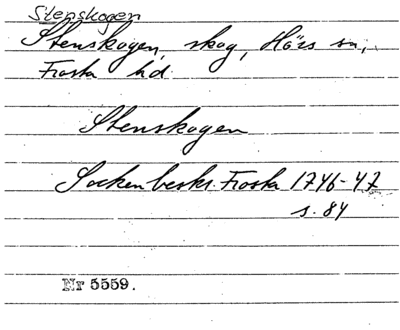 Stenskogen
Stenskogen, skog, Hörs sn,
Frosta hd.
Stenskogen
Sockenbeskr. Frosta 1746-47
s. 84
Nr 5559.